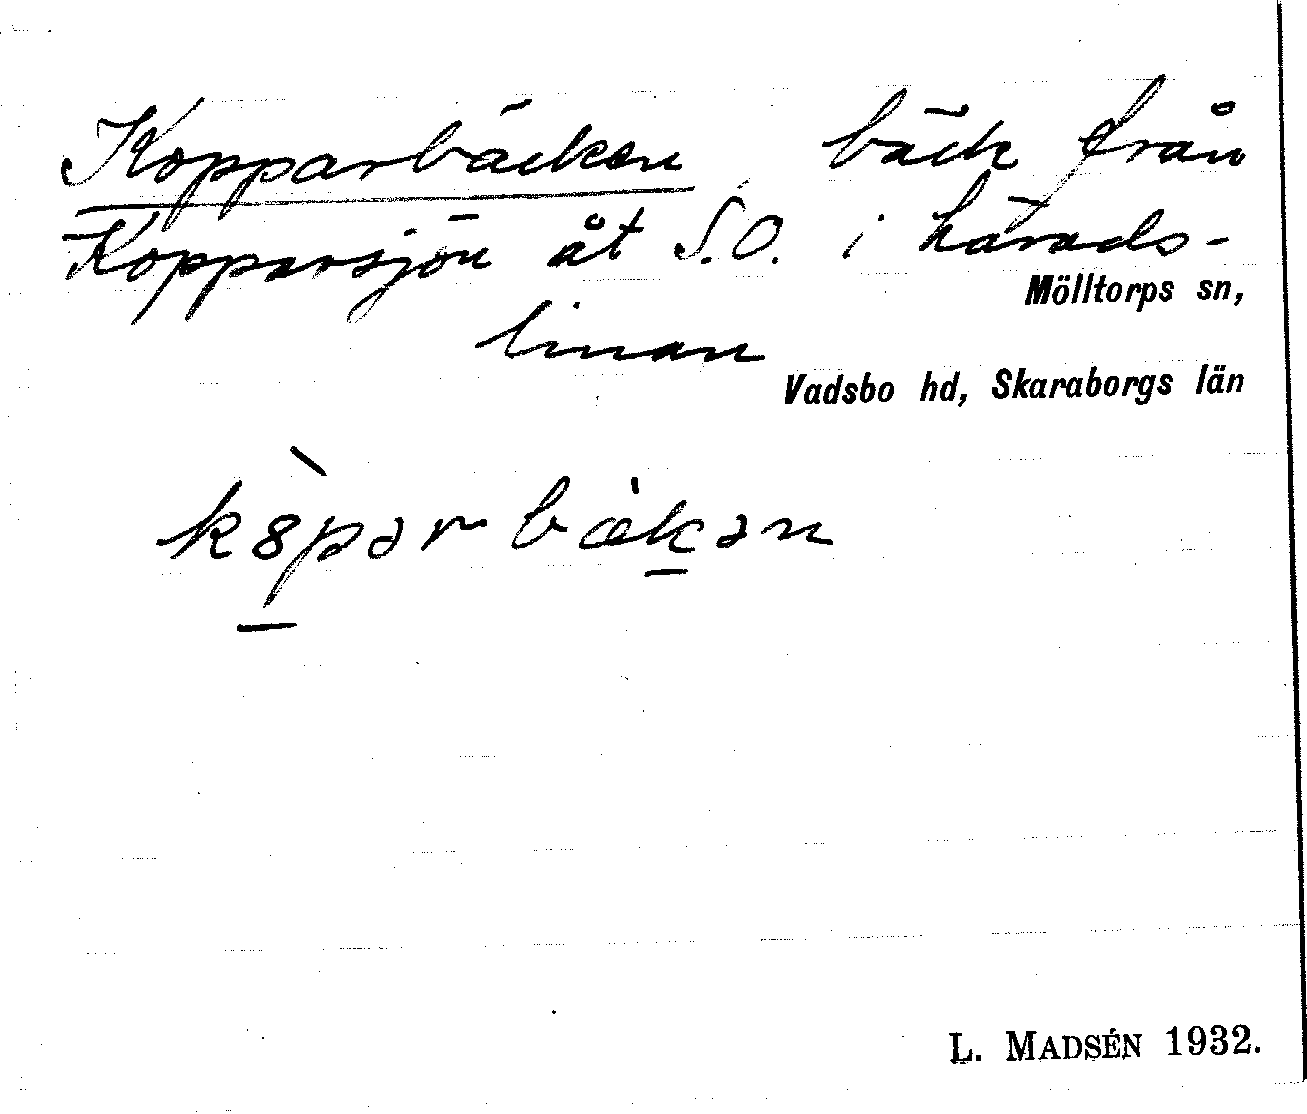 Kopparbäcken, bäck från
Kopparsjön åt S.O. i härads-
Mölltorps sn,
linan
Vadsbo hd, Skaraborgs län
kȣ̀parbækan
L. MADSÉN 1932.